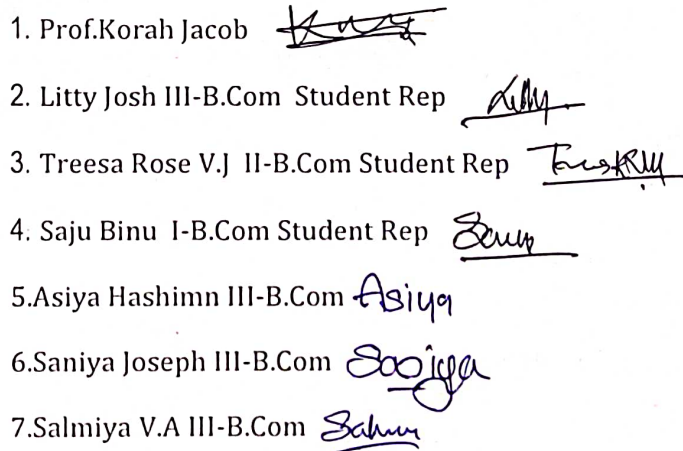 1. Prof.Korah Jacob
2. Litty Josh III-B.Com Student Rep Litty
3. Treesa Rose V.J II-B.Com Student Rep
4. Saju Binu I-B.Com Student Rep
5.Asiya Hashimn III-B.Com Asiya
6.Saniya Joseph III-B.Com Saniya
7.Salmiya V.A III-B.Com